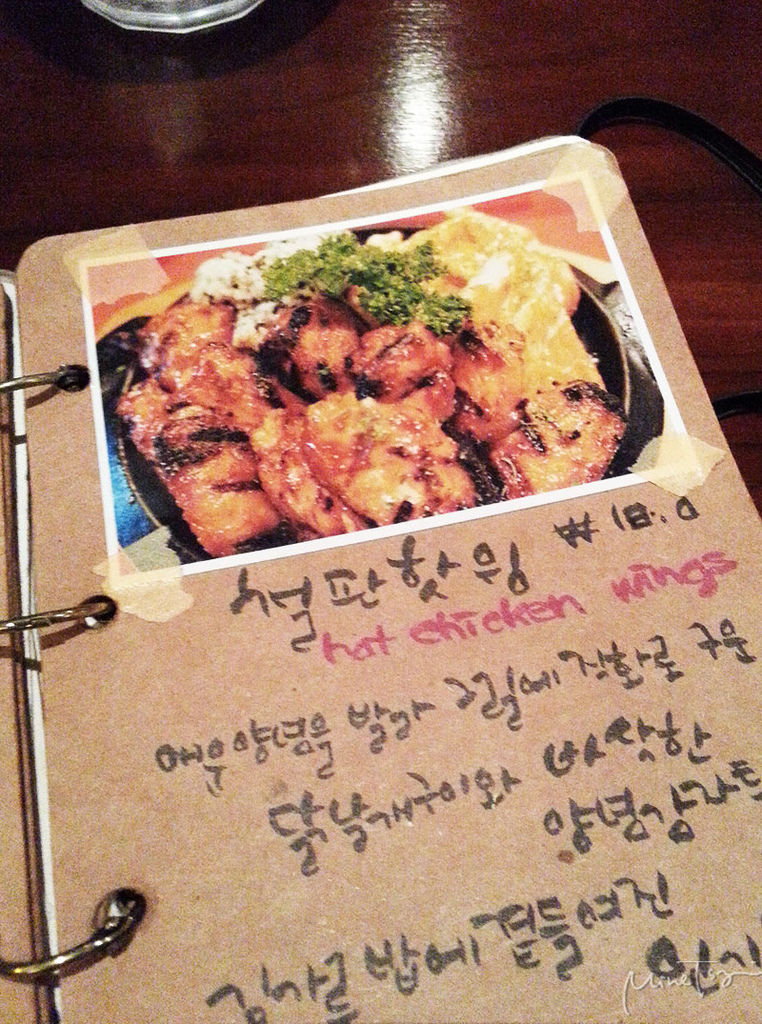 철판핫윙 ₩18.0
hot chicken wings
매운양념을 발라 그릴에 직화로 구운
닭날개구이와 바삭한
양념감자튀
김가루밥에 곁들여진